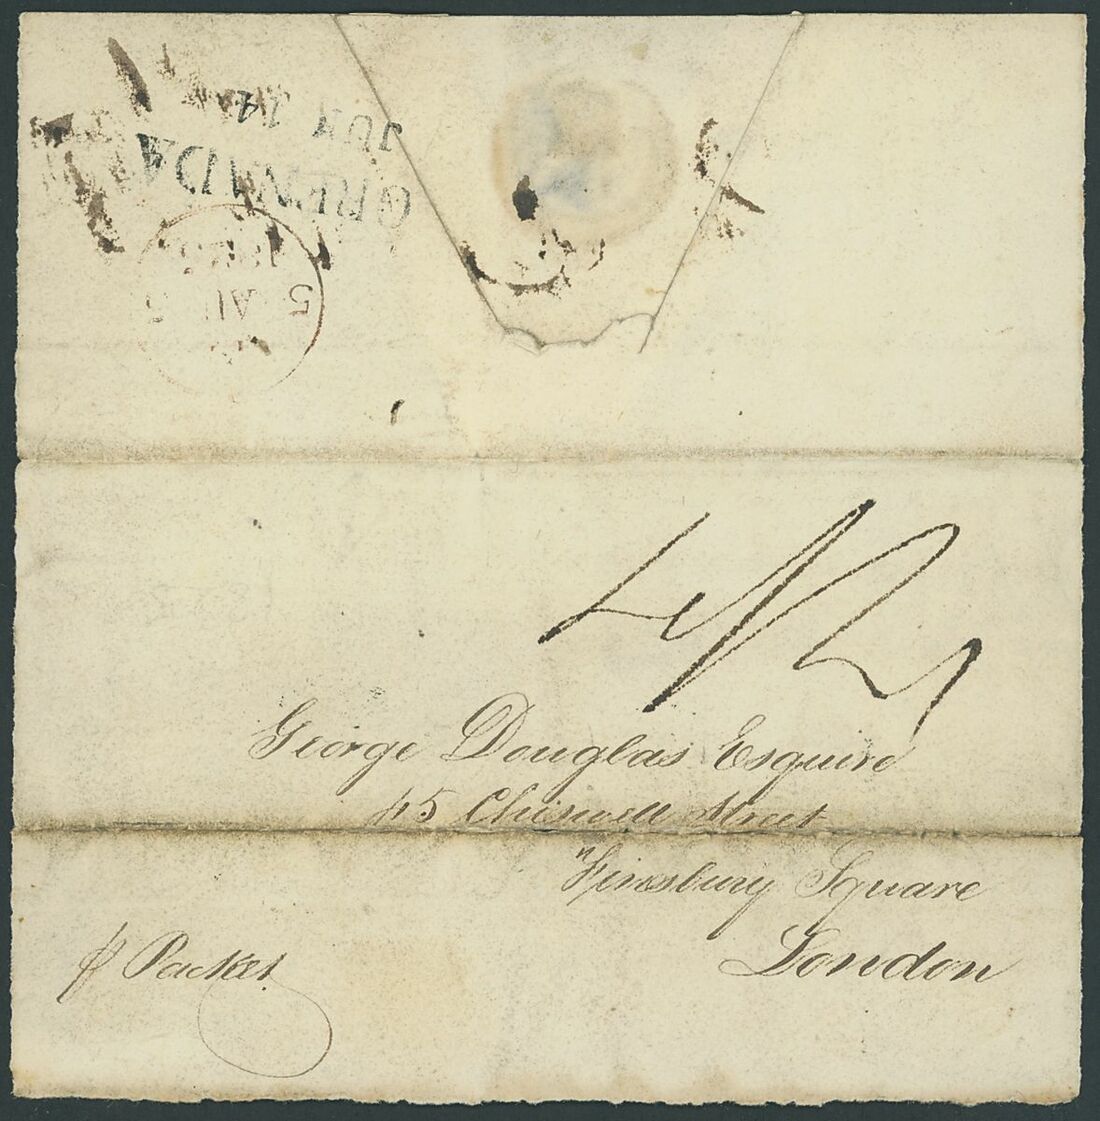 JUN 14
GRENADA
5 AU 5
4/2
George Douglas Esquire
45 Chiswell Street
Finsbury Square
London
p Packet